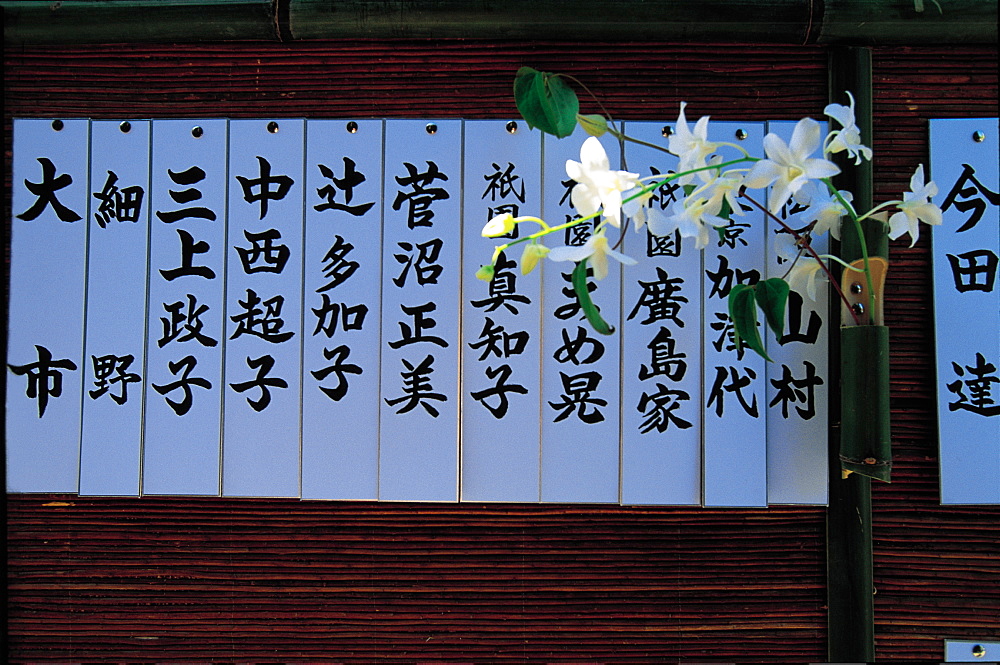 今田達
山村
京 加津代
園 廣島家
園 まめ晃
祇園 真知子
菅沼正美
辻 多加子
中西超子
三上政子
細野
大市